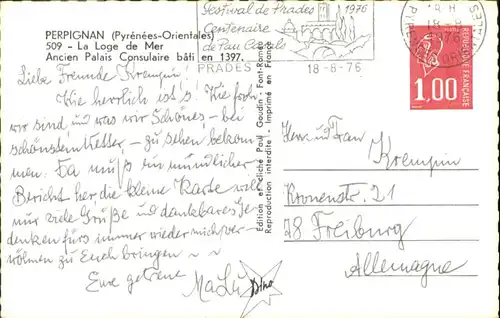 PERPIGNAN (Pyrénées-Orientales)
509 - La Loge de Mer
Ancien Palais Consulaire bâti en 1397.
Festival de Prades 1976
Centenaire
de Pau Casals
PRADES
18-8-76
Liebe Freunde Krempin!
Wie herrlich ist's! Wie froh
wir sind, und was wir Schönes - bei
schönstem Wetter - zu sehen bekom
men. Da muß ein mündlicher
Bericht her, die kleine Karte will
nur viele Grüße und dankbares Ge
denken fürs immer wieder mich ver-
wöhnen zu Euch bringen ~ ~
Eure getreue
MaLu
Dino
Edition et cliché Paul Gaudin - Font-Romeu
Reproduction interdite - Imprimé en France
1,00
POSTES
RÉPUBLIQUE FRANÇAISE
Herrn und Frau
Krempin
Kronenstr. 21
78 Freiburg
Allemagne